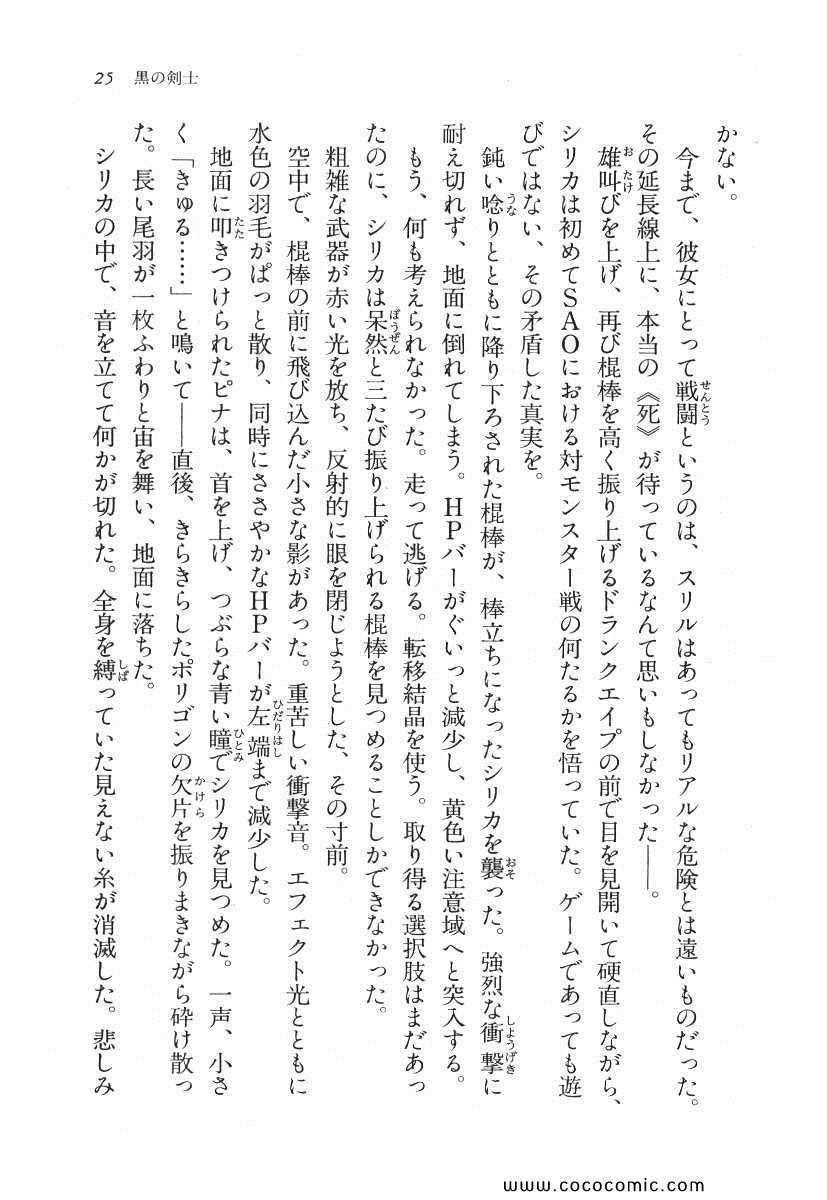 25 黒の剣士
かない。
今まで、彼女にとって戦闘というのは、スリルはあってもリアルな危険とは遠いものだった。
その延長線上に、本当の《死》が待っているなんて思いもしなかった——。
雄叫びを上げ、再び棍棒を高く振り上げるドランクエイプの前で目を見開いて硬直しながら、
シリカは初めてSAOにおける対モンスター戦の何たるかを悟っていた。ゲームであっても遊
びではない、その矛盾した真実を。
鈍い唸りとともに降り下ろされた棍棒が、棒立ちになったシリカを襲った。強烈な衝撃に
耐え切れず、地面に倒れてしまう。HPバーがぐいっと減少し、黄色い注意域へと突入する。
もう、何も考えられなかった。走って逃げる。転移結晶を使う。取り得る選択肢はまだあっ
たのに、シリカは呆然と三たび振り上げられる棍棒を見つめることしかできなかった。
粗雑な武器が赤い光を放ち、反射的に眼を閉じようとした、その寸前。
空中で、棍棒の前に飛び込んだ小さな影があった。重苦しい衝撃音。エフェクト光とともに
水色の羽毛がぱっと散り、同時にささやかなHPバーが左端まで減少した。
地面に叩きつけられたピナは、首を上げ、つぶらな青い瞳でシリカを見つめた。一声、小さ
く「きゅる……」と鳴いて——直後、きらきらしたポリゴンの欠片を振りまきながら砕け散っ
た。長い尾羽が一枚ふわりと宙を舞い、地面に落ちた。
シリカの中で、音を立てて何かが切れた。全身を縛っていた見えない糸が消滅した。悲しみ
www.cococomic.com